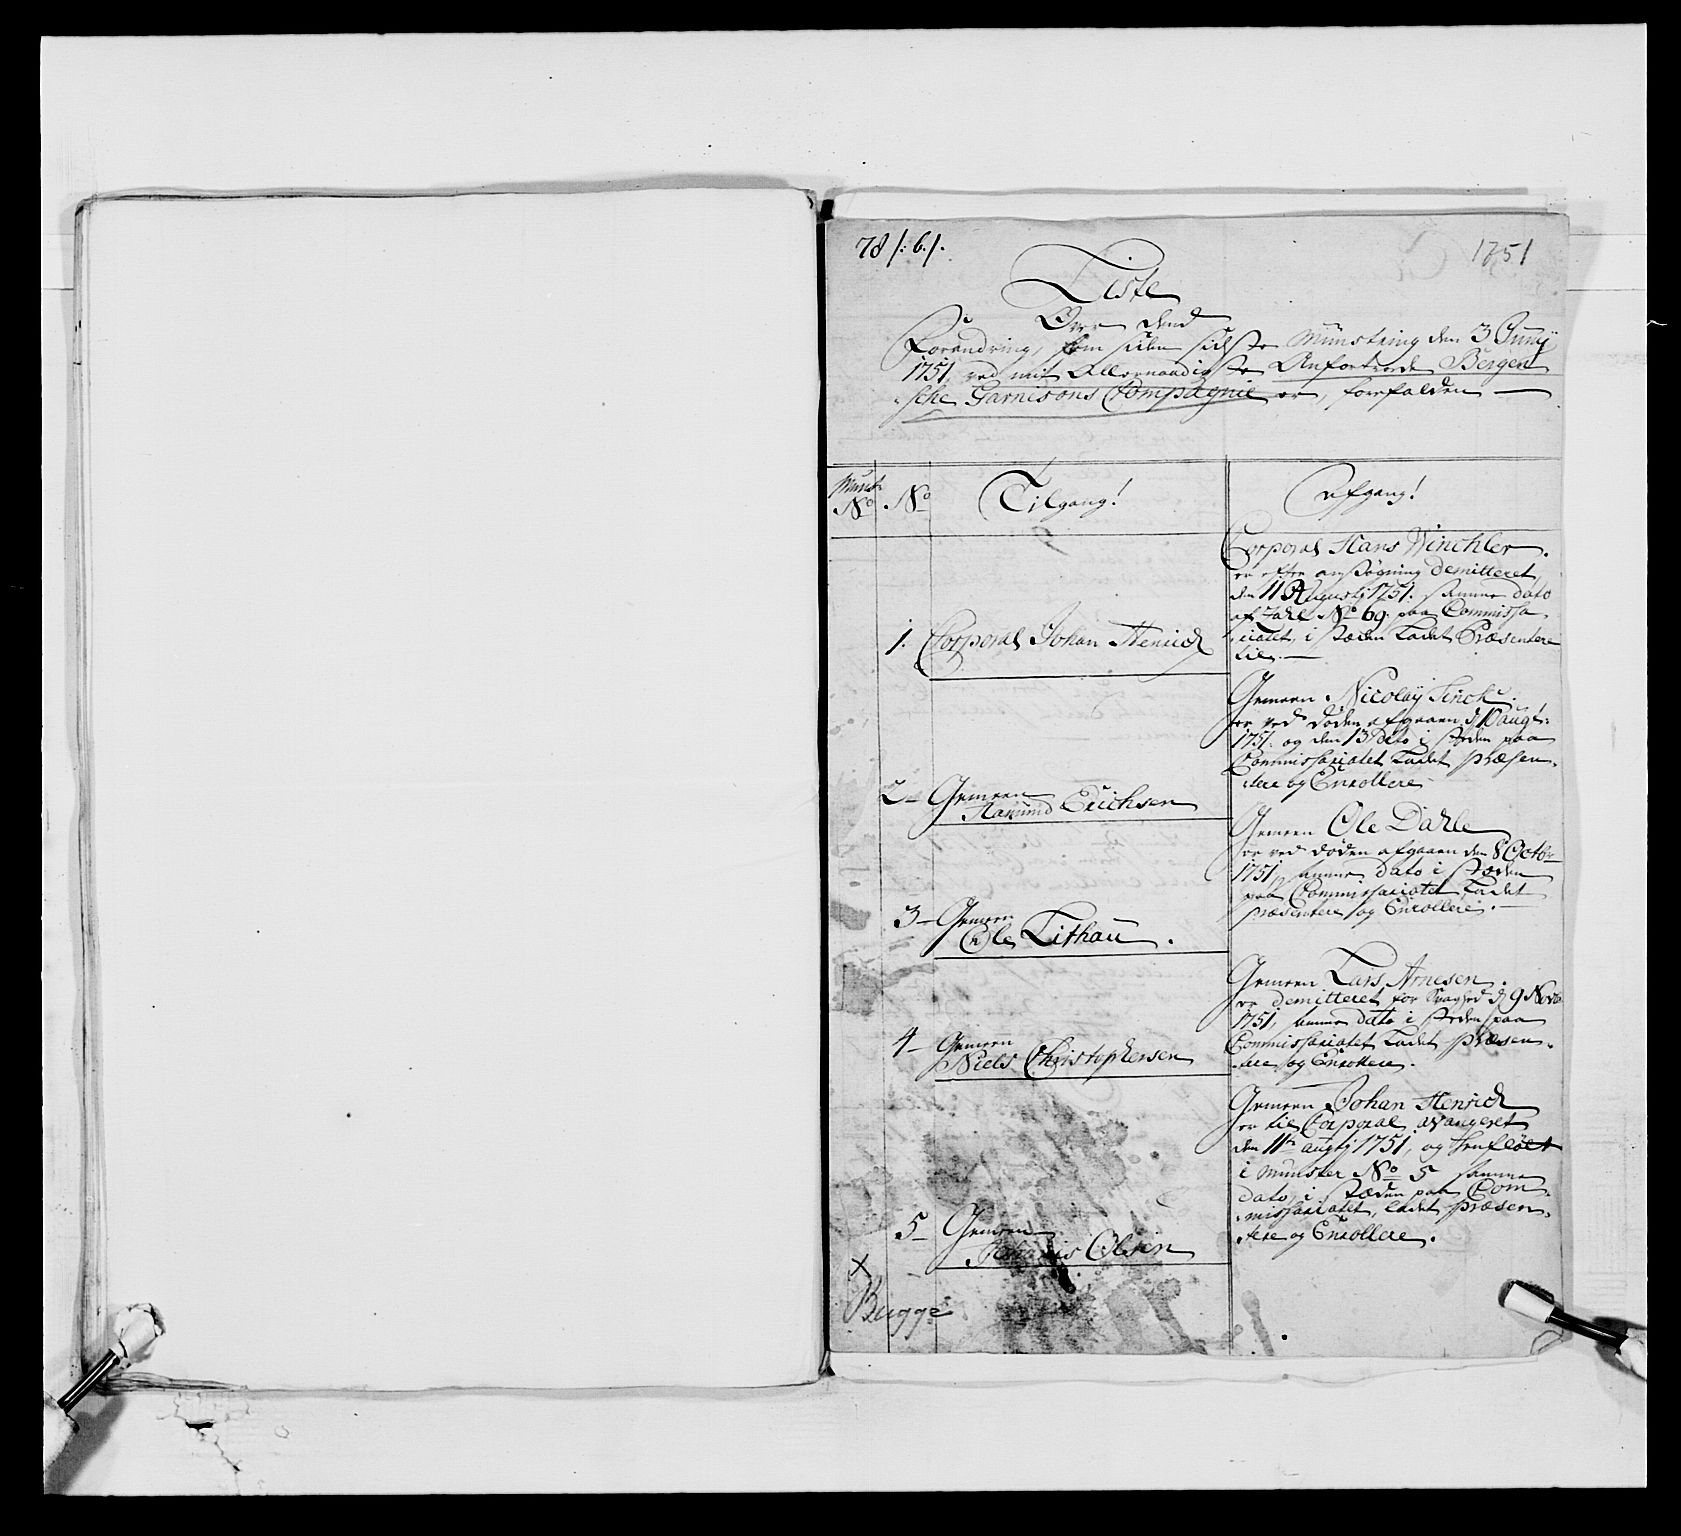 78 /: 6./.
1751
Liste
Over dend
Forandring, som siden sidste Münstring den 3 Junÿ
1751, ved mit Allernaadigste Anfortroede Bergen
sche Garnisons Compagnie er, forefalden
Münst: No
No
Tilgang!
Afgang!
Corporal Hans Winchler.
er efter ansøgning demitteret
den 11 Augustj 1751. samme dato
af No 69. paa Commissa
riatet i stæden ladet Præsentere
til
1. Corporal Johan Henrich
Gemeen Nicolaÿ Finck
er ved døden afgaaen d 10 augt:
1751. og den 13 dito i steden paa
Commissariatet ladet præsen-
tere og Enrollere
2 Gemeen
Erichsen
Gemeen Ole Dahle
er ved døden afgaaen den 8 Octbr
1751, samme dato i stæden
paa Commissariatet ladet
præsentere og Enrollere.
3 Gemeen
Ole Lithau.
Gemeen Lars Arnesen.
er demitteret for Svaghed d 9 Novb
1751, samme dato i steden paa
Commissariatet ladet præsen-
tere og Enrollere.
4 Gemeen
Niels Christophersen
Gemeen Johan Henrich
er til Corporal avangeret
den 11te augtj 1751, og henfløtt
i Münster No 5 samme
dato, i stæden paa Com-
missariatet, ladet præsen-
tere og Enrollere.
5 Gemeen
Olsen
x
Bugge